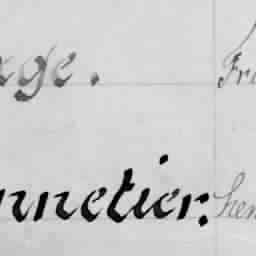 age. Fr
nnetier. hen